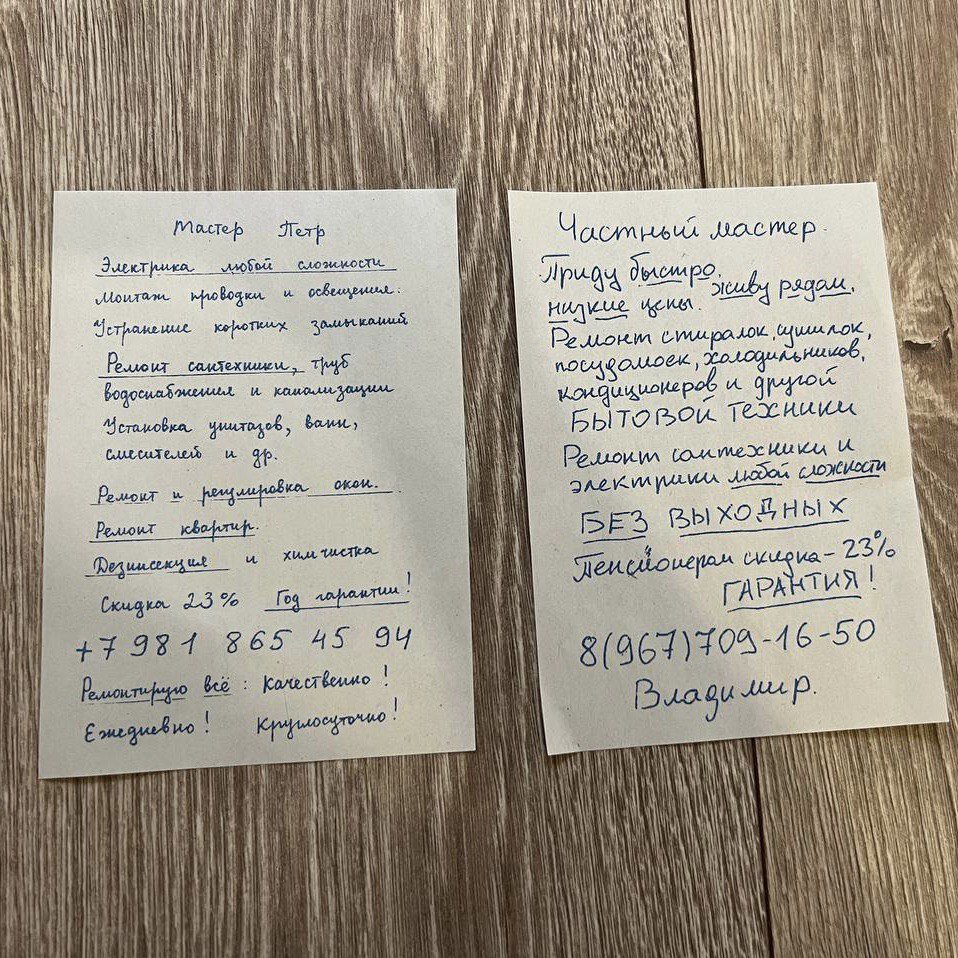 Мастер Петр
Электрика любой сложности
Монтаж проводки и освещения.
Устранение коротких замыканий
Ремонт сантехники, труб
водоснабжения и канализации
Установка унитазов, ванн,
смесителей и др.
Ремонт и регулировка окон.
Ремонт квартир.
Дезинсекция и химчистка
Скидка 23% Год гарантии!
+7 981 865 45 94
Ремонтирую всё: Качественно!
Ежедневно! Круглосуточно!
Частный мастер.
Приду быстро,
живу рядом,
низкие цены.
Ремонт стиралок, сушилок,
посудомоек, холодильников,
кондиционеров и другой
БЫТОВОЙ ТЕХНИКИ
Ремонт сантехники и
электрики любой сложности
БЕЗ ВЫХОДНЫХ
Пенсионерам скидка - 23%
ГАРАНТИЯ!
8(967)709-16-50
Владимир.